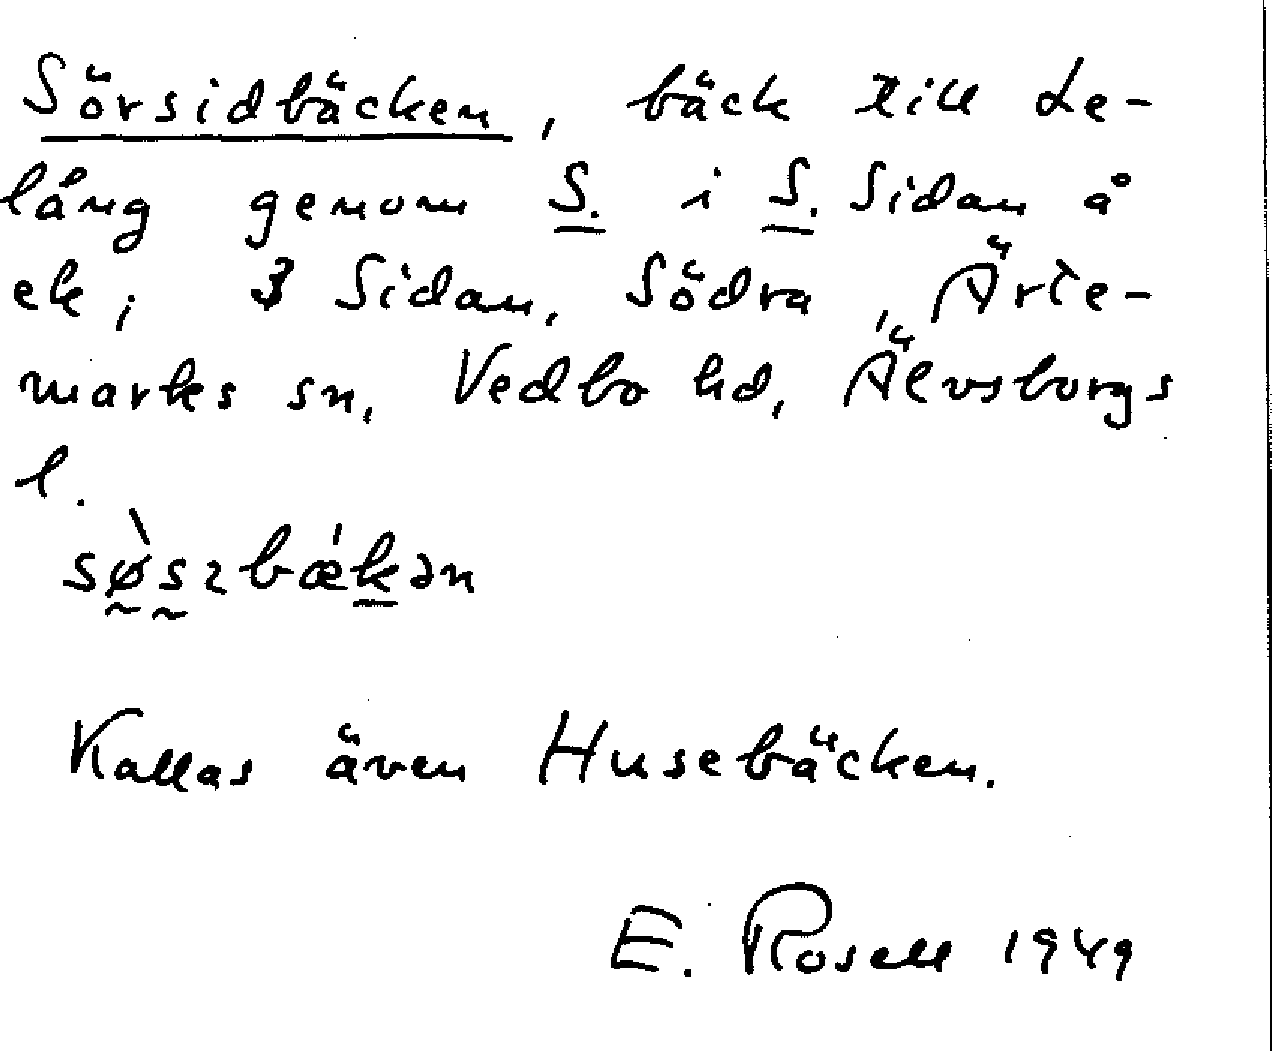 Sörsidbäcken, bäck till Le-
lång genom S. i S. Sidan å
ek; 3 Sidan, Södra, Ärte-
marks sn, Vedbo hd, Älvsborgs
l.
Kallas även Husebäcken.
E. Rosell 1949